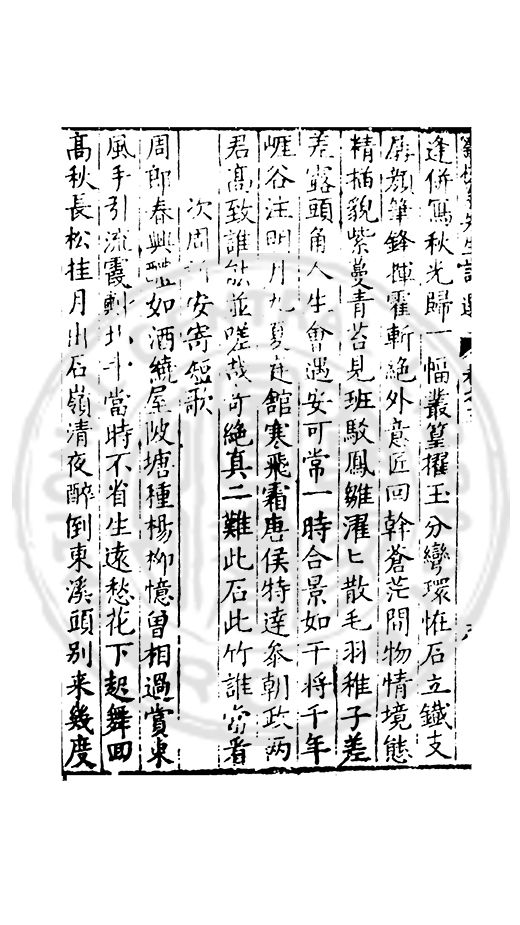 逢併寫秋光歸一幅叢篁擢玉分彎環恠石立鐵支
孱顏筆鋒揮霍斬絕外意匠回斡蒼茫間物情境態
精植貌紫蔓青苔見班駁鳳雛濯匕散毛羽稚子差
差露頭角人生會遇安可常一時合景如干將千年
嶇谷注明月九夏庭館寒飛霜唐侯特達參朝政两
君髙致誰能並嗟哉竒絶真二難此石此竹誰當看
次周 安寄短歌
周郎春興醲如酒繞屋陂塘種楊柳憶曾相過賞東
風手引流霞斟北斗當時不省生遠愁花下起舞回
髙秋長松挂月出石嶺清夜醉倒東溪頭别来幾度